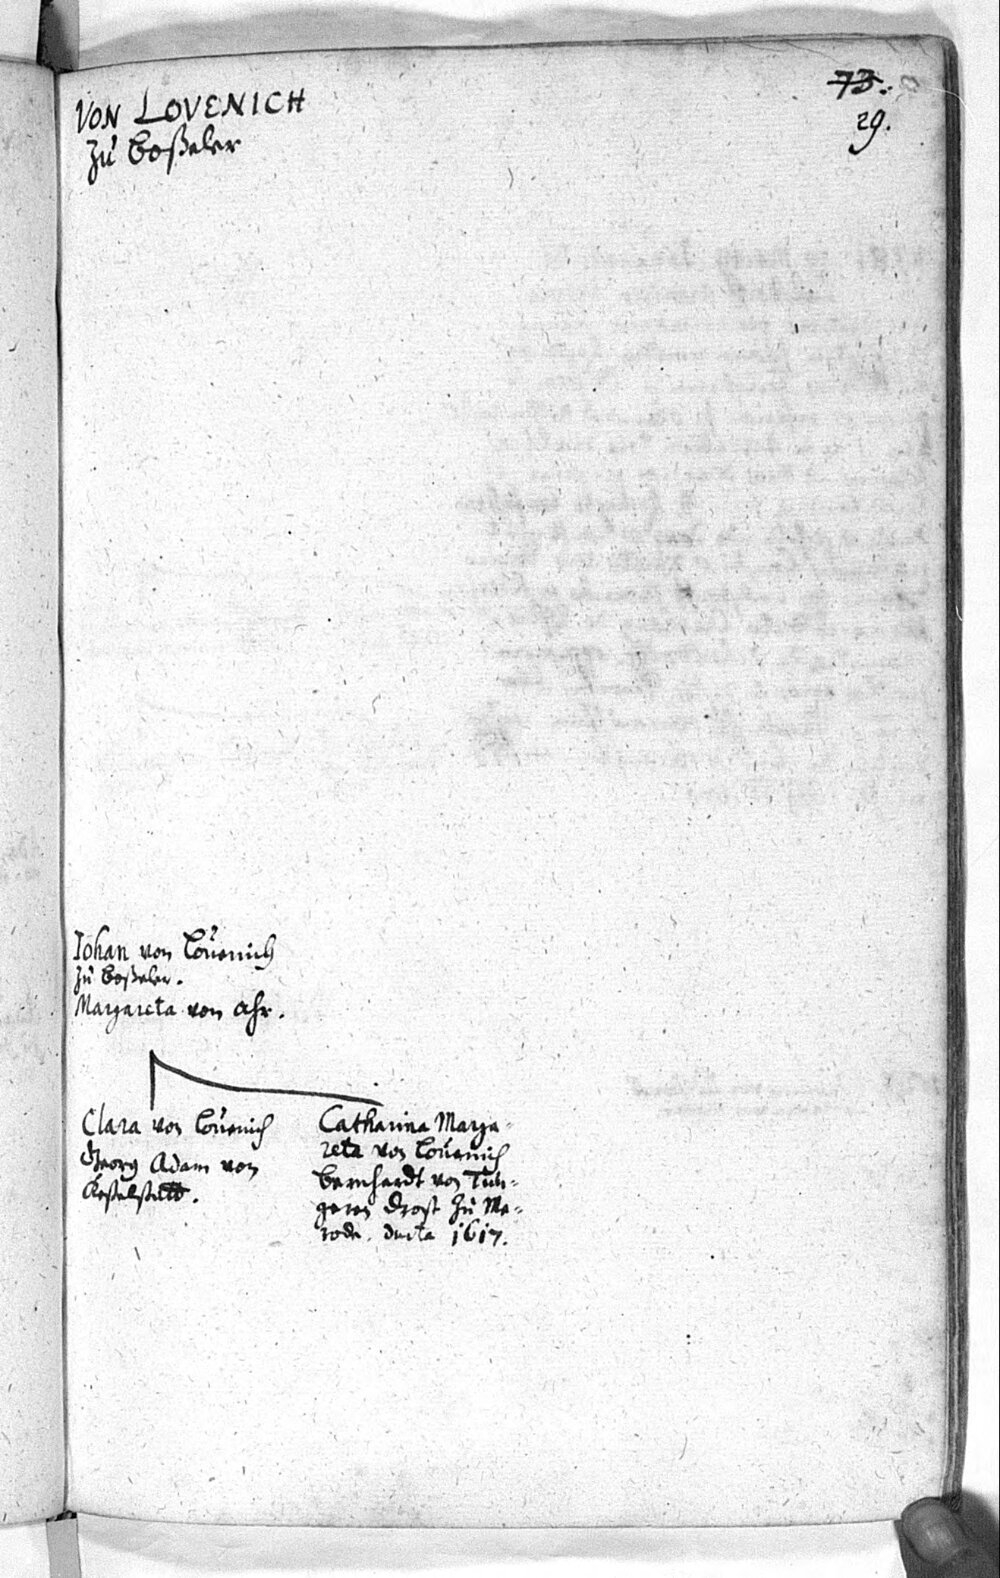 VON LOVENICH
zu Boßeler
73.
29.
Iohan von Lövenich
zu Boßeler.
Margareta von Ahr.
Clara von Lövenich
Georg Adam von
Keßelstatt.
Catharina Marga-
reta von Lövenich
Bernhardt von Tun-
geren Drost zu Me-
rode. ducta 1617.